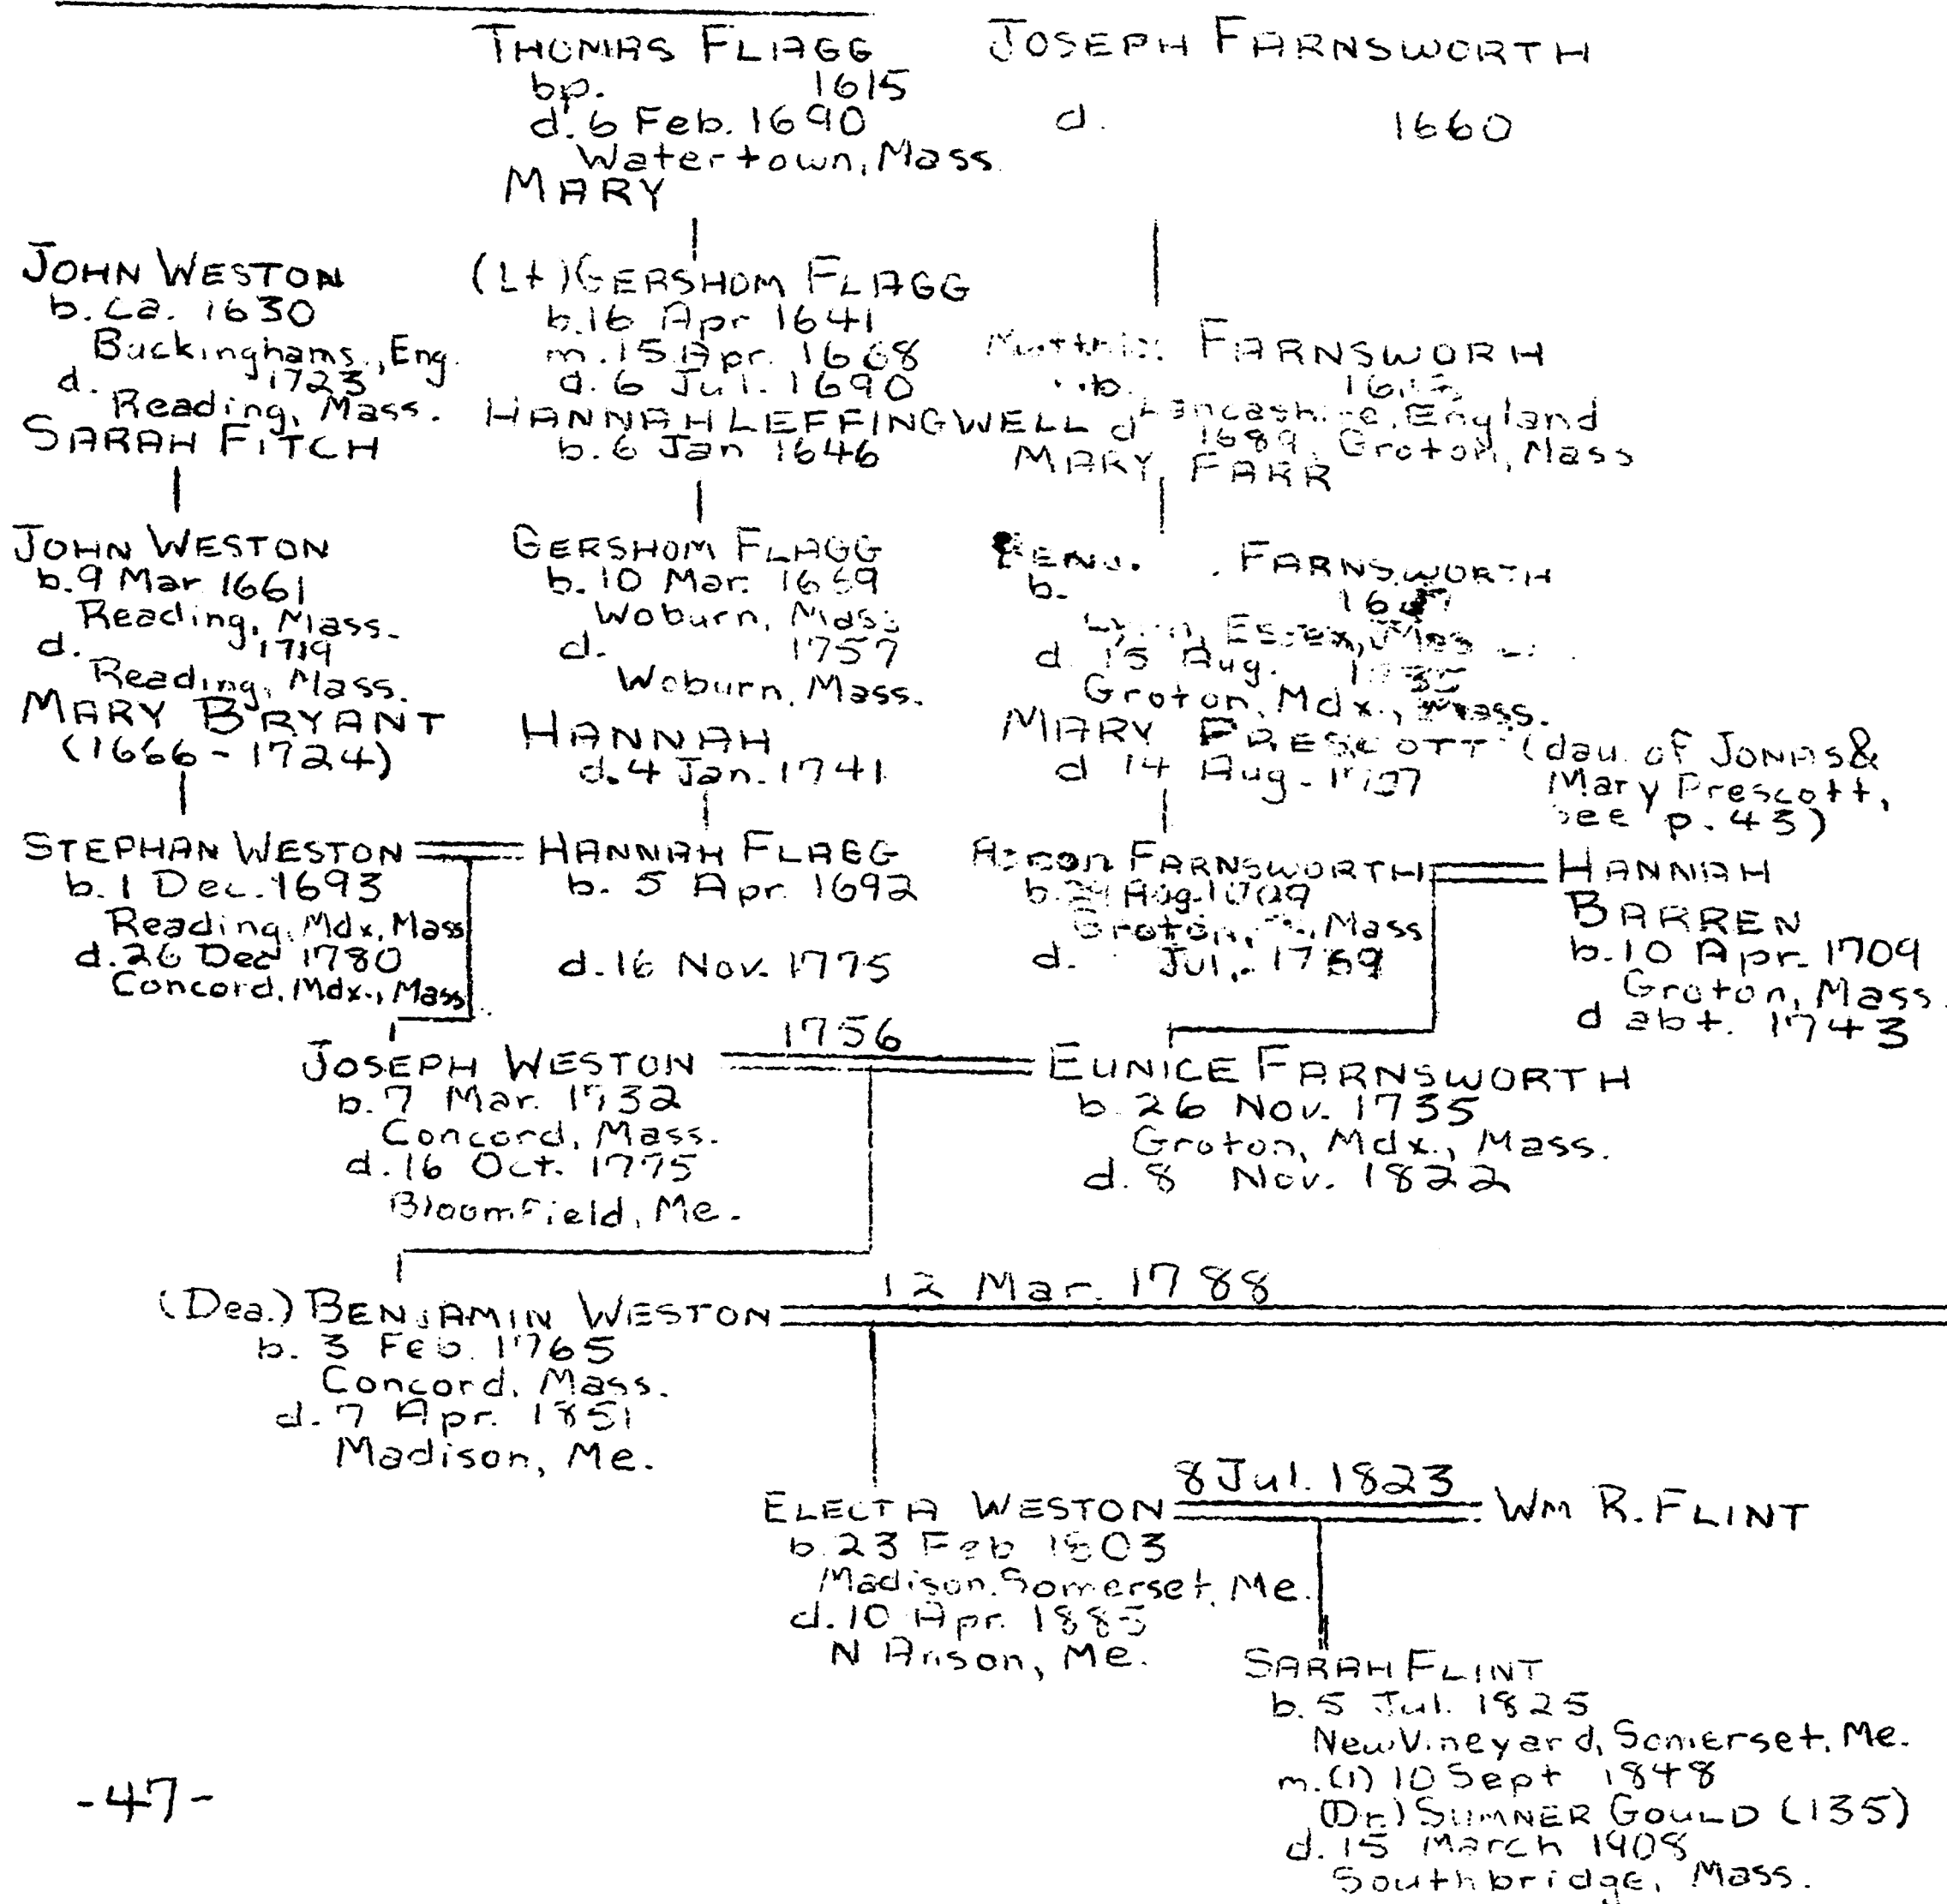 THOMAS FLAGG
bp. 1615
d. 6 Feb. 1690
Watertown, Mass.
MARY
JOSEPH FARNSWORTH
d. 1660
JOHN WESTON
b. ca. 1630
Buckinghams., Eng.
d. 1723
Reading, Mass.
SARAH FITCH
(Lt) GERSHOM FLAGG
b. 16 Apr 1641
m. 15 Apr. 1668
d. 6 Jul. 1690
HANNAH LEFFINGWELL
b. 6 Jan 1646
FARNSWORH
b.
Lancashire, England
d 1689, Groton, Mass
MARY FARR
JOHN WESTON
b. 9 Mar 1661
Reading, Mass.
d. 1719
Reading, Mass.
MARY BRYANT
(1666 - 1724)
GERSHOM FLAGG
b. 10 Mar. 1669
Woburn, Mass
d. 1757
Woburn, Mass.
HANNAH
d. 4 Jan. 1741
BENJ. FARNSWORTH
b.
Essex,
d 15 Aug.
Groton, Mdx., Mass.
MARY PRESCOTT (dau. of JONAS &
Mary Prescott,
see p. 43)
d 14 Aug.
STEPHAN WESTON
b. 1 Dec. 1693
Reading, Mdx, Mass
d. 26 Dec 1780
Concord, Mdx., Mass.
HANNAH FLAGG
b. 5 Apr. 1692
d. 16 Nov. 1775
Aaron FARNSWORTH
b. Aug. 1709
Groton, Mass
d. Jul. 1769
HANNAH
BARREN
b. 10 Apr. 1709
Groton, Mass.
d abt. 1743
1756
JOSEPH WESTON
b. 7 Mar. 1732
Concord, Mass.
d. 16 Oct. 1775
Bloomfield, Me.
EUNICE FARNSWORTH
b. 26 Nov. 1735
Groton, Mdx., Mass.
d. 8 Nov. 1822
12 Mar. 1788
(Dea.) BENJAMIN WESTON
b. 3 Feb. 1765
Concord, Mass.
d. 7 Apr. 1851
Madison, Me.
8 Jul. 1823
ELECTA WESTON
b. 23 Feb 1803
Madison, Somerset, Me.
d. 10 Apr. 1885
N Anson, Me.
WM R. FLINT
SARAH FLINT
b. 5 Jul. 1825
New Vineyard, Somerset, Me.
m. (1) 10 Sept 1848
(Dr.) SUMNER GOULD (135)
d. 15 March 1908
Southbridge, Mass.
-47-